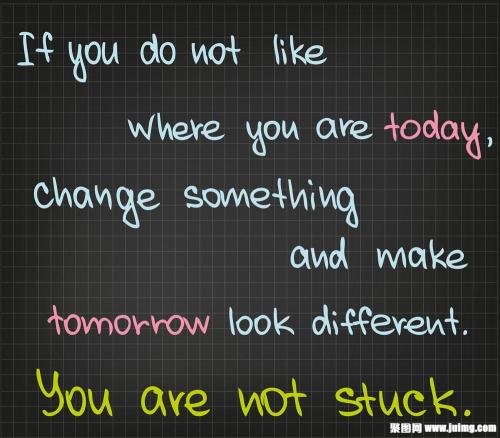 If you do not like
where you are today,
change something
and make
tomorrow look different.
You are not stuck.
聚图网 www.juimg.com